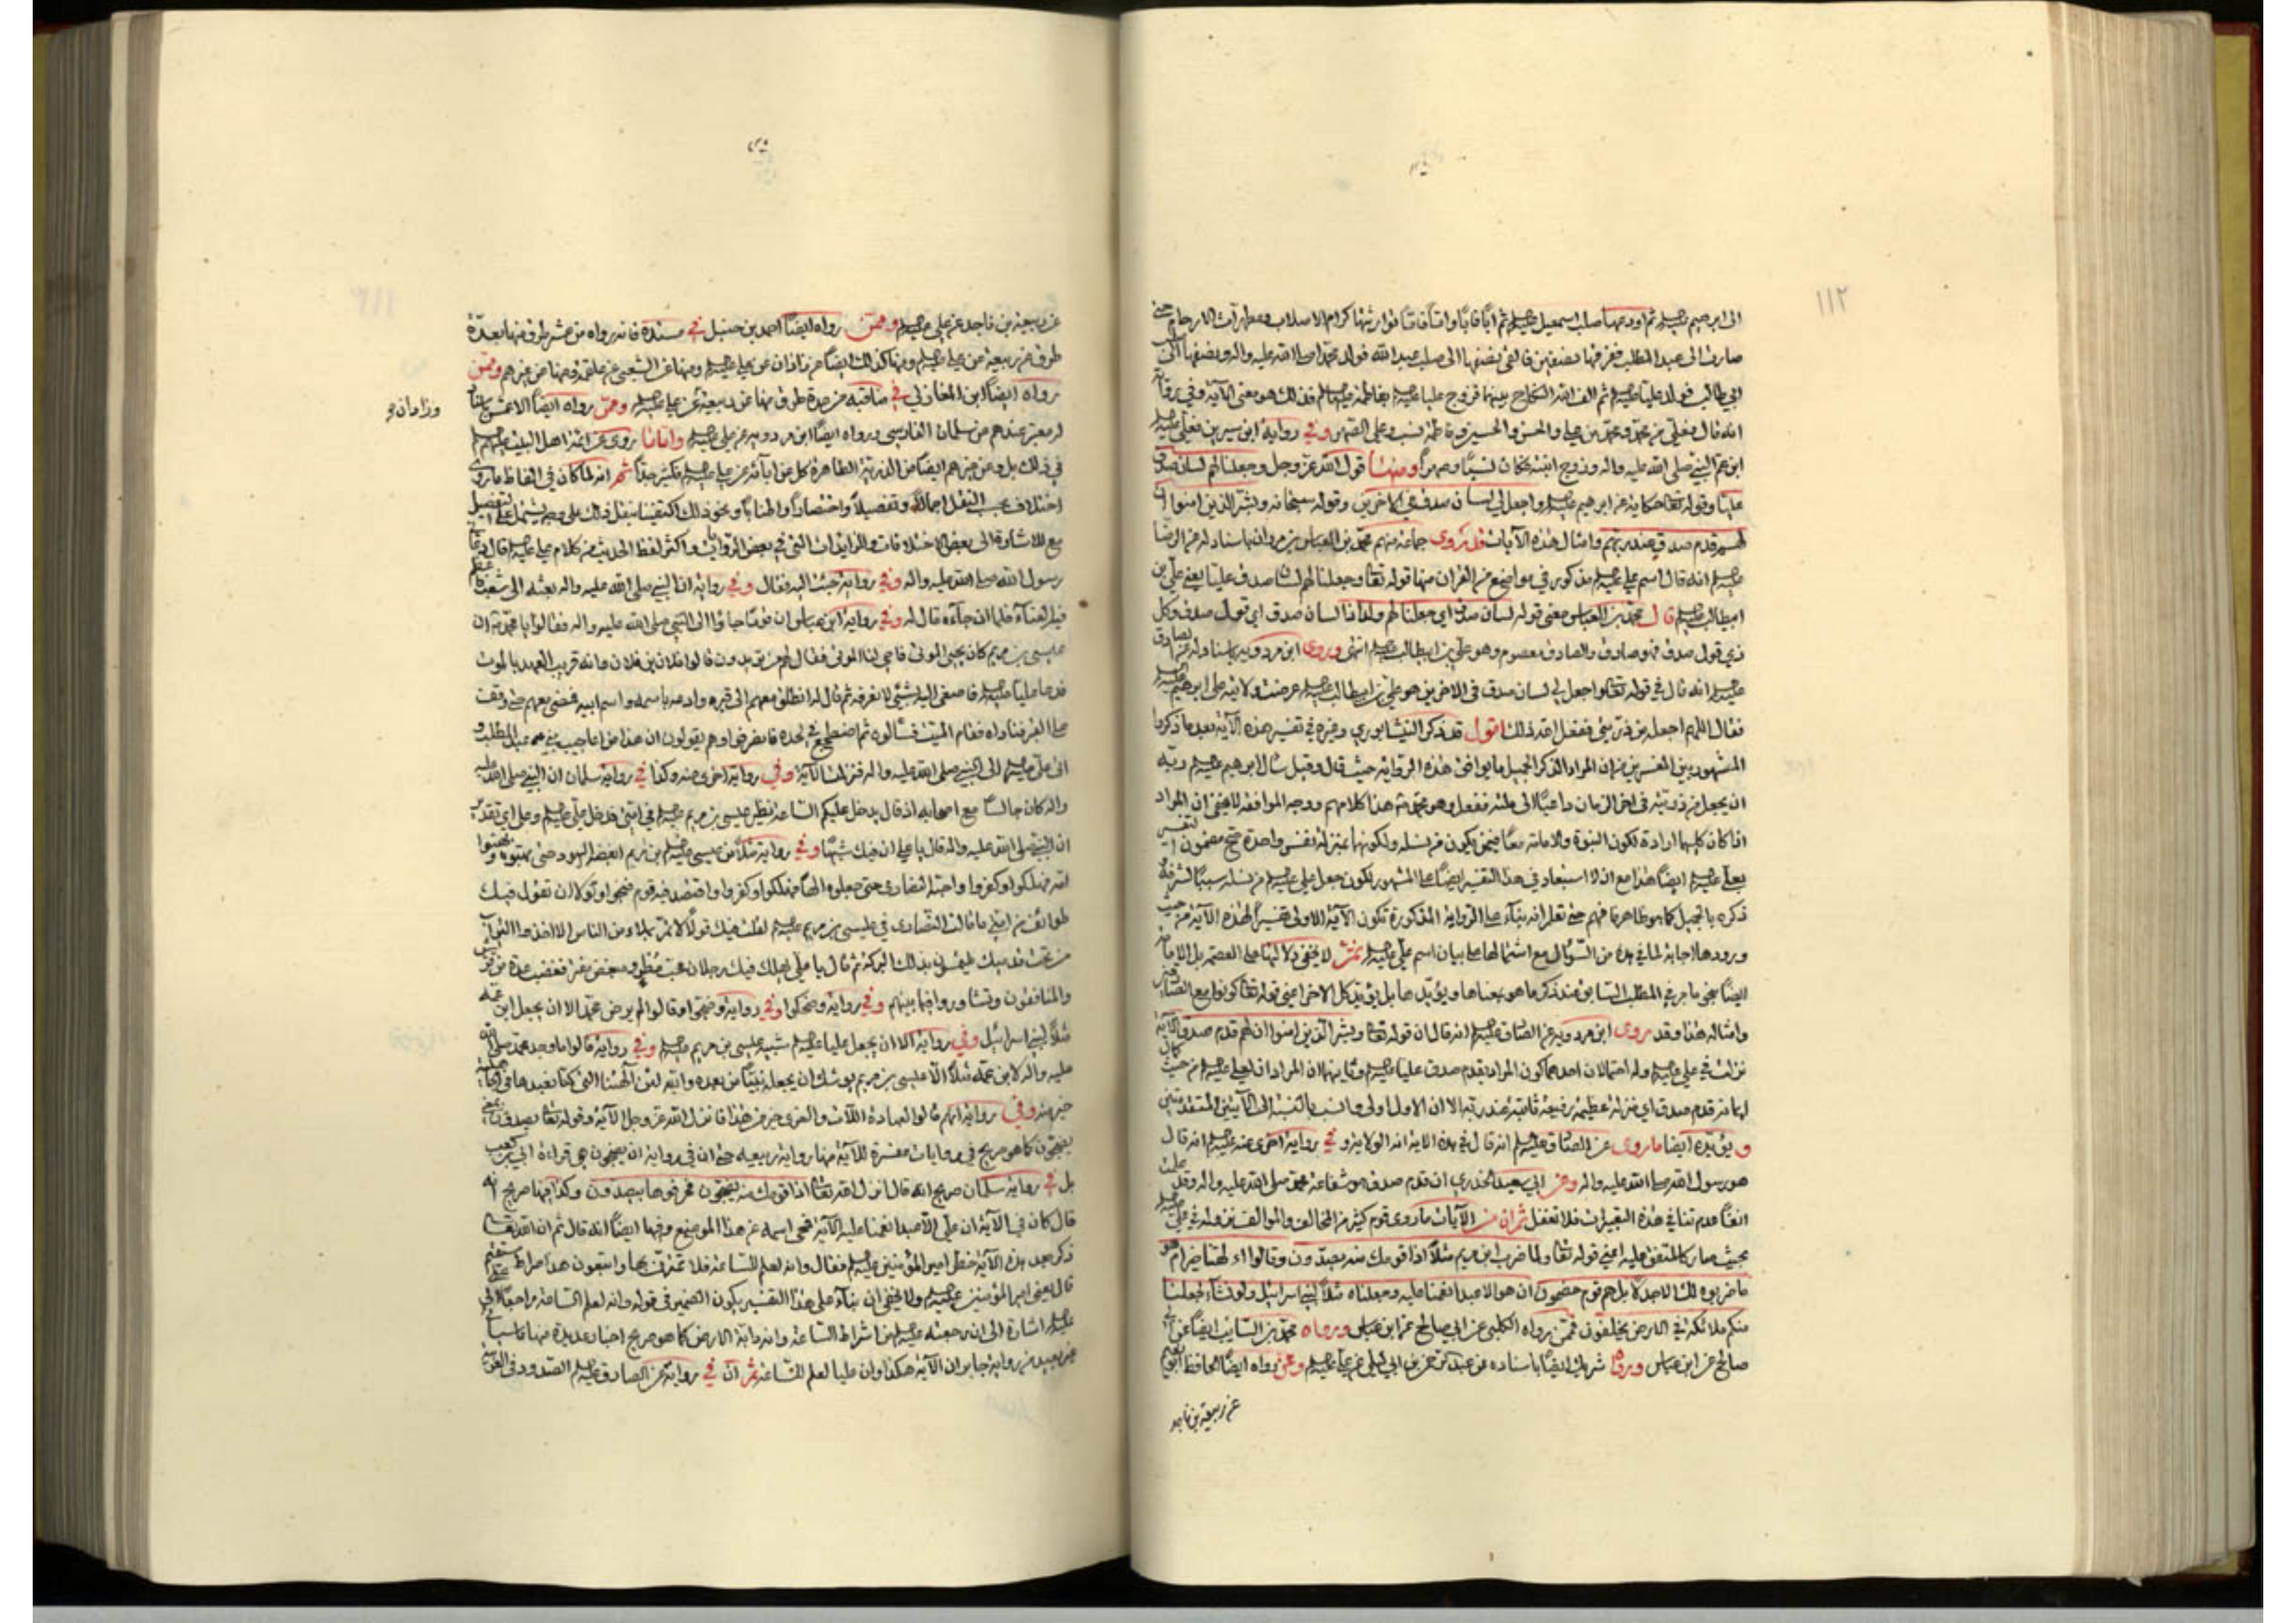 ١١٢
الى ابرهيم عليه السلم ثم اودعها صلب اسمعيل عليه السلم ثم ابًا فابًا وامًا فامًا فوارثتها كرام الاصلاب ومطهرات الارحام حتى
صارت الى عبد المطلب ففرقها نصفين فالقى نصفها الى صلب عبد الله فولد محمدا صلى الله عليه واله ونصفها الى صلب
ابي طالب فولد عليا عليه السلم ثم الف الله النكاح بينهما فزوج عليا عليه السلم بفاطمة عليها السلم فذلك هو معنى الآية وفي رواية
انه قال فعلي من محمد ومحمد من علي والحسن والحسين وفاطمة نسب وعلي الصهر وفي رواية ابن سيرين فعلي عليه السلم
ابن عم النبي صلى الله عليه واله وزوج ابنته فكان نسبًا وصهرًا ومنها قول الله عز وجل وجعلنا لهم لسان صدق
عليا وقوله تعالى حكاية عن ابرهيم عليه السلم واجعل لي لسان صدق في الاخرين وقوله سبحانه وبشر الذين امنوا ان
لهم قدم صدق عند ربهم وامثال هذه الآيات فقد روى جماعة منهم محمد بن العباس بن مروان باسناده عن الرضا
عليه السلم انه قال اسم علي عليه السلم مذكور في مواضع من القران منها قوله تعالى وجعلنا لهم لسان صدق عليا يعني علي بن
ابيطالب عليه السلم قال محمد بن العباس معنى قوله لسان صدق اي جعلنا لهم ولدا ذا لسان صدق اي قول صدق وكل
ذي قول صدق فهو صادق والصادق معصوم وهو علي بن ابيطالب عليه السلم انتهى وروى ابن مردويه باسناده عن الصادق
عليه السلم انه قال في قوله تعالى واجعل لي لسان صدق في الاخرين هو علي بن ابيطالب عليه السلم عرضت ولايته على ابرهيم عليه السلم
فقال اللهم اجعله من ذريتي ففعل الله ذلك اقول قد ذكر النيشابوري وغيره في تفسير هذه الآية بعد ما ذكروا
المشهور بين المفسرين من ان المراد الذكر الجميل ما يوافق هذه الرواية حيث قال وقيل سأل ابرهيم عليه السلم ربه
ان يجعل من ذريته في اخر الزمان داعيًا الى ملته ففعل وهو محمد هذا كلامهم ووجه الموافقة لا يخفى ان المراد
اذا كان كليهما ارادة لكون النبوة والامامة معًا
بعلي عليه السلم ايضًا هذا مع ان لا استبعاد في هذا التفسير ايضًا على المشهور لكون جعل علي عليه السلم من نسله سببًا لشرفه
ذكره بالجميل كما هو ظاهر فافهم حتى تعلم انه بناء على الرواية المذكورة تكون الآية الاولى تفسيرًا لهذه الآية من حيث
ورودها اجابة لما في هذه من السؤال مع اشتمالها على بيان اسم علي عليه السلم ثم لا يخفى دلالتها على العصمة بل الامامة
وامثاله هذا وقد روى ابن مردويه عن الصادق عليه السلم انه قال ان قوله تعالى وبشر الذين امنوا ان لهم قدم صدق الآية
نزلت في علي عليه السلم وله احتمالان احدهما كون المراد بقدم صدق عليا عليه السلم وثانيهما ان المراد ان لعلي عليه السلم من حيث
ايمانه قدم صدق اي منزلة عظيمة رفيعة ثابتة عند ربه الا ان الاول اولى وانسب بالنسبة الى الآيتين المتقدمتين
ويؤيده ايضا ما روى عن الصادق عليه السلم انه قال في هذه الاية انه الولاية وفي رواية اخرى عنه عليه السلم انه قال
هو رسول الله صلى الله عليه واله وعن ابي سعيد الخدري ان قدم صدق هو شفاعة محمد صلى الله عليه واله وقد علمت
انفًا عدم تنافي هذه التعبيرات فلا تغفل ثم ان من الآيات ما روى قوم كثير من المخالف والموالف نزوله في علي عليه السلم
بحيث صار كالمتفق عليه اعني قوله تعالى ولما ضرب ابن مريم مثلًا اذا قومك منه يصدون وقالوا ءالهتنا خير ام هو
ما ضربوه لك الا جدلا بل هم قوم خصمون ان هو الا عبد انعمنا عليه وجعلناه مثلًا لبني اسرائيل ولو نشاء لجعلنا
منكم ملائكة في الارض يخلفون فممن رواه الكلبي عن ابي صالح عن ابن عباس ورواه محمد بن السائب ايضًا عن ابي
صالح عن ابن عباس ورواه شريك ايضًا باسناده عن عبد الرحمن بن ابي ليلى عن علي عليه السلم وممن رواه ايضًا الحافظ ابو نعيم
عن ربيعة بن ناجد
عن ربيعة بن ناجد عن علي عليه السلم وممن رواه ايضًا احمد بن حنبل في مسنده فانه رواه من عشر طرق منها بعدة
طرق عن ربيعة عن علي عليه السلم ومنها كذلك ايضًا عن زاذان عن علي عليه السلم ومنها عن الشعبي عن علقمة ومنها عن غيرهم وممن
رواه ايضًا ابن المغازلي في مناقبه من عدة طرق منها عن ربيعة عن علي عليه السلم وممن رواه ايضًا الاعمش
وزاذان
عندهم من سلمان الفارسي ورواه ايضًا ابن مردويه عن علي عليه السلم واما ما روى عن ائمة اهل البيت عليهم السلم
في ذلك بل وعن غيرهم ايضًا من الذرية الطاهرة كل عن ابائه عن علي عليه السلم فكثير جدًّا ثم انه لما كان في الفاظ ما روى
اختلاف بحسب النقل اجمالًا وتفصيلًا واختصارًا واطنابًا ونحو ذلك اكتفينا بنقل ذلك على وجه يشتمل على التفصيل
مع الاشارة الى بعض الاختلافات والزايدات التي في بعض الروايات واكثر لفظ الحديث من كلام علي عليه السلم قال دعاني
رسول الله صلى الله عليه واله وفي رواية جئت اليه فقال وفي رواية ان النبي صلى الله عليه واله بعثه الى شعب
فلما ان جاءه قال له وفي رواية ابن عباس ان قومًا جاؤا الى النبي صلى الله عليه واله فقالوا يا محمد ان
عيسى بن مريم كان يحيي الموتى فاحي لنا الموتى فقال لهم من تريدون قالوا فلان بن فلان وانه قريب العهد بالموت
فدعا عليا عليه السلم فاصغى اليه بشيء لا نعرفه ثم قال له انطلق معهم الى قبره وادعه باسمه واسم ابيه فمضى معهم حتى وقف
على القبر فناداه فقام الميت فسألوه ثم اضطجع في لحده فانصرفوا وهم يقولون ان هذا من اعاجيب بني عبد المطلب
الى النبي صلى الله عليه واله فنزلت الآية وفي رواية اخرى عنه وكذا في رواية سلمان ان النبي صلى الله عليه
واله كان جالسًا مع اصحابه اذ قال يدخل عليكم الساعة نظير عيسى بن مريم عليه السلم في امتي فدخل علي عليه السلم
ان النبي صلى الله عليه واله قال يا علي ان فيك شبهًا وفي رواية مثلًا من عيسى عليه السلم بن مريم ابغضه اليهود حتى بهتوه وبهتوا
امه فهلكوا وكفروا واحبه النصارى حتى جعلوه الهًا فهلكوا وكفروا واقتصد فيه قوم فنجوا ولولا ان تقول فيك
طوائف من امتي ما قالت النصارى في عيسى بن مريم عليه السلم لقلت فيك قولًا لا تمر بملاء من الناس الا اخذوا التراب
من تحت قدميك يلتمسون بذلك البركة ثم قال يا علي يهلك فيك رجلان محب مفرط ومبغض مفتر فغضب عدة من قريش
والمنافقون وتشاوروا فيما بينهم وفي رواية وضحكوا وفي رواية وضجوا وقالوا لم يرض محمد الا ان يجعل ابن عمه
مثلًا لبني اسرائيل وفي رواية الا ان يجعل عليا عليه السلم شبيه عيسى بن مريم عليه السلم وفي رواية قالوا ما وجد محمد صلى الله
عليه واله لابن عمه مثلًا الا عيسى بن مريم يوشك ان يجعله نبيًّا من بعده والله لئن آلهتنا التي كنا نعبدها في الجاهلية
خير منه وفي رواية انهم قالوا لعبادة اللات والعزى خير من هذا فانزل الله عز وجل الآية وقوله تعالى يصدون يعني
يضجون كما هو صريح في روايات مفسرة للآية منها رواية ربيعة حتى ان في رواية ان يضجون هي قراءة ابي بن كعب
بل في رواية سلمان صريح انه قال انزل الله تعالى اذا قومك منه يضجون فحرفوها يصدون وكذا فيها صريح انه
قال كان في الآية ان علي الا عبد انعمنا عليه الآية فمحى اسمه عن هذا الموضع وفيها ايضًا انه قال ثم ان الله تعالى
ذكر بعد هذه الآية خطر امير المؤمنين عليه السلم فقال وانه لعلم للساعة فلا تمترن بها واتبعون هذا صراط مستقيم
قال يعني امير المؤمنين عليه السلم ولا يخفى ان بناء على هذا التفسير يكون الضمير في قوله وانه لعلم الساعة راجعًا الى علي
عليه السلم اشارة الى ان رجعته عليه السلم من اشراط الساعة وانه دابة الارض كما هو صريح اخبار عديدة منها
من رواية جابر ان الآية هكذا وان عليا لعلم للساعة ثم ان في رواية عن الصادق عليه السلم الصدود في العربية